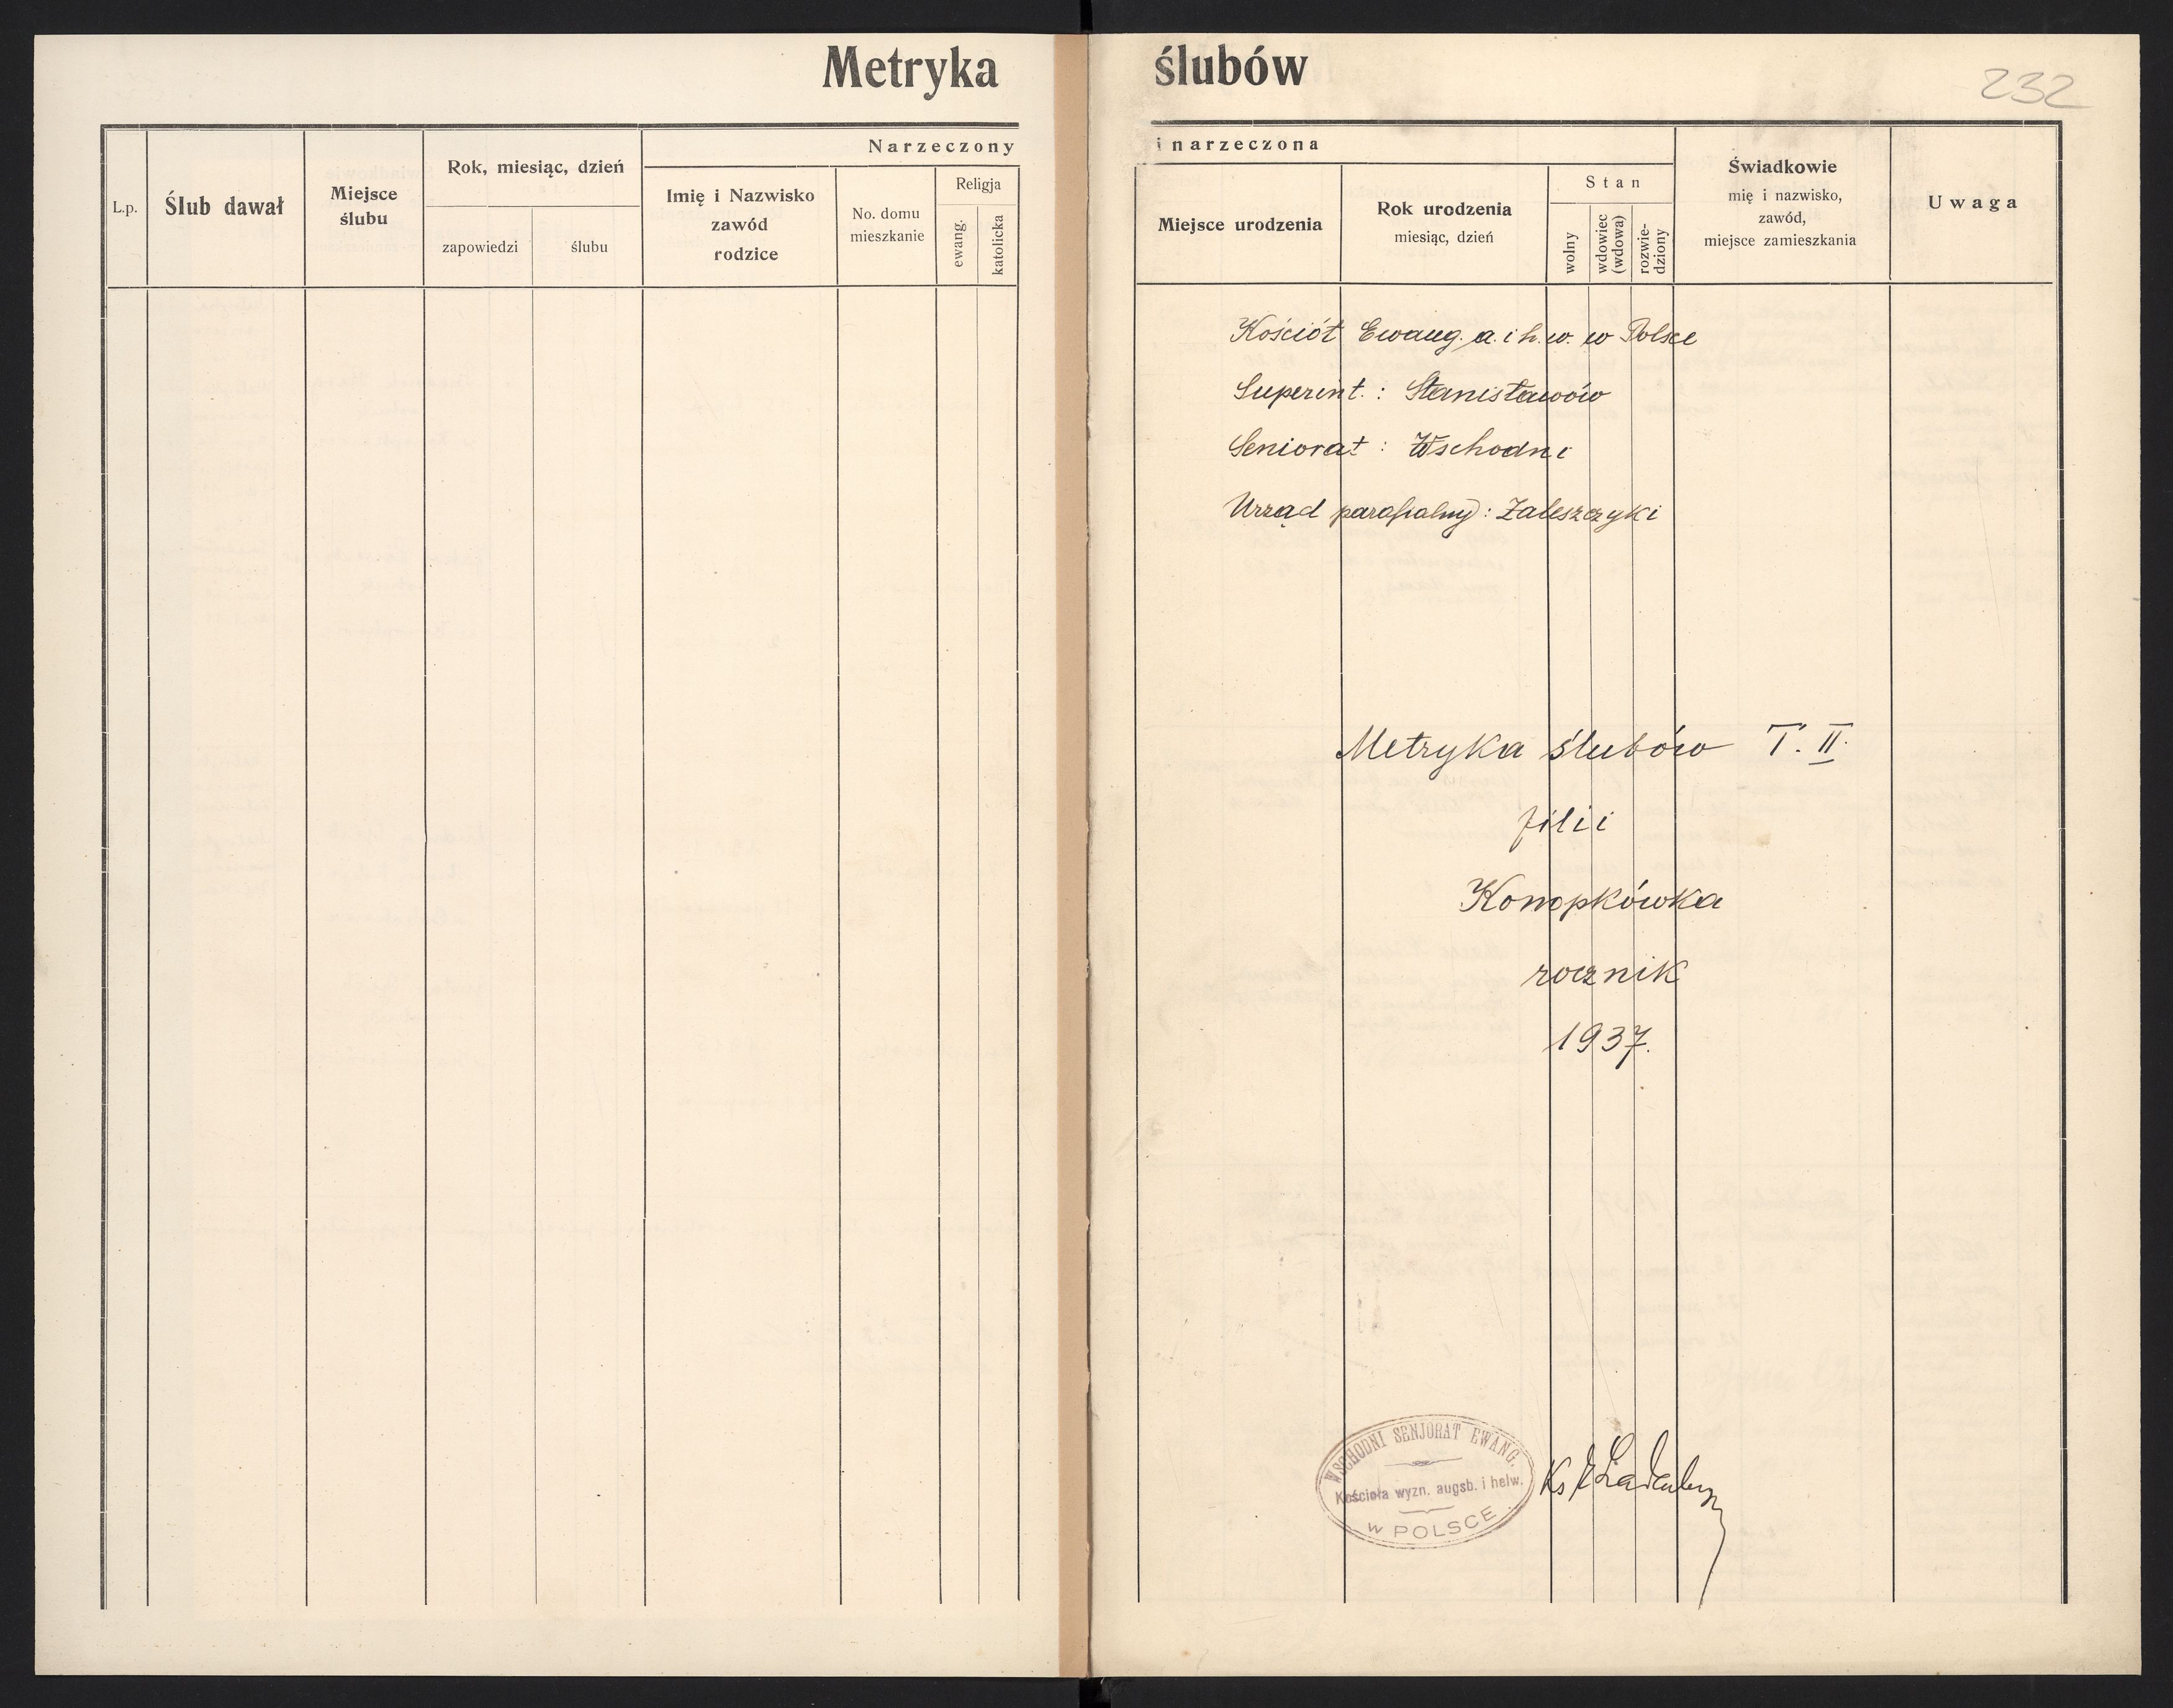 Metryka ślubów
232
L.p.
Ślub dawał
Miejsce
ślubu
Rok, miesiąc, dzień
zapowiedzi
ślubu
Narzeczony
Imię i Nazwisko
zawód
rodzice
No. domu
mieszkanie
Religja
ewang.
katolicka
i narzeczona
Miejsce urodzenia
Rok urodzenia
miesiąc, dzień
Stan
wolny
wdowiec
(wdowa)
rozwie-
dziony
Świadkowie
mię i nazwisko,
zawód,
miejsce zamieszkania
Uwaga
Kościół Ewang. a. i h. w. w Polsce
Superint.: Stanisławów
Seniorat: Wschodni
Urząd parafialny: Zaleszczyki
Metryka ślubów T. II.
filii
Konopkówka
rocznik
1937.
WSCHODNI SENJORAT EWANG.
Kościoła wyzn. augsb. i helw.
w POLSCE.
Ks